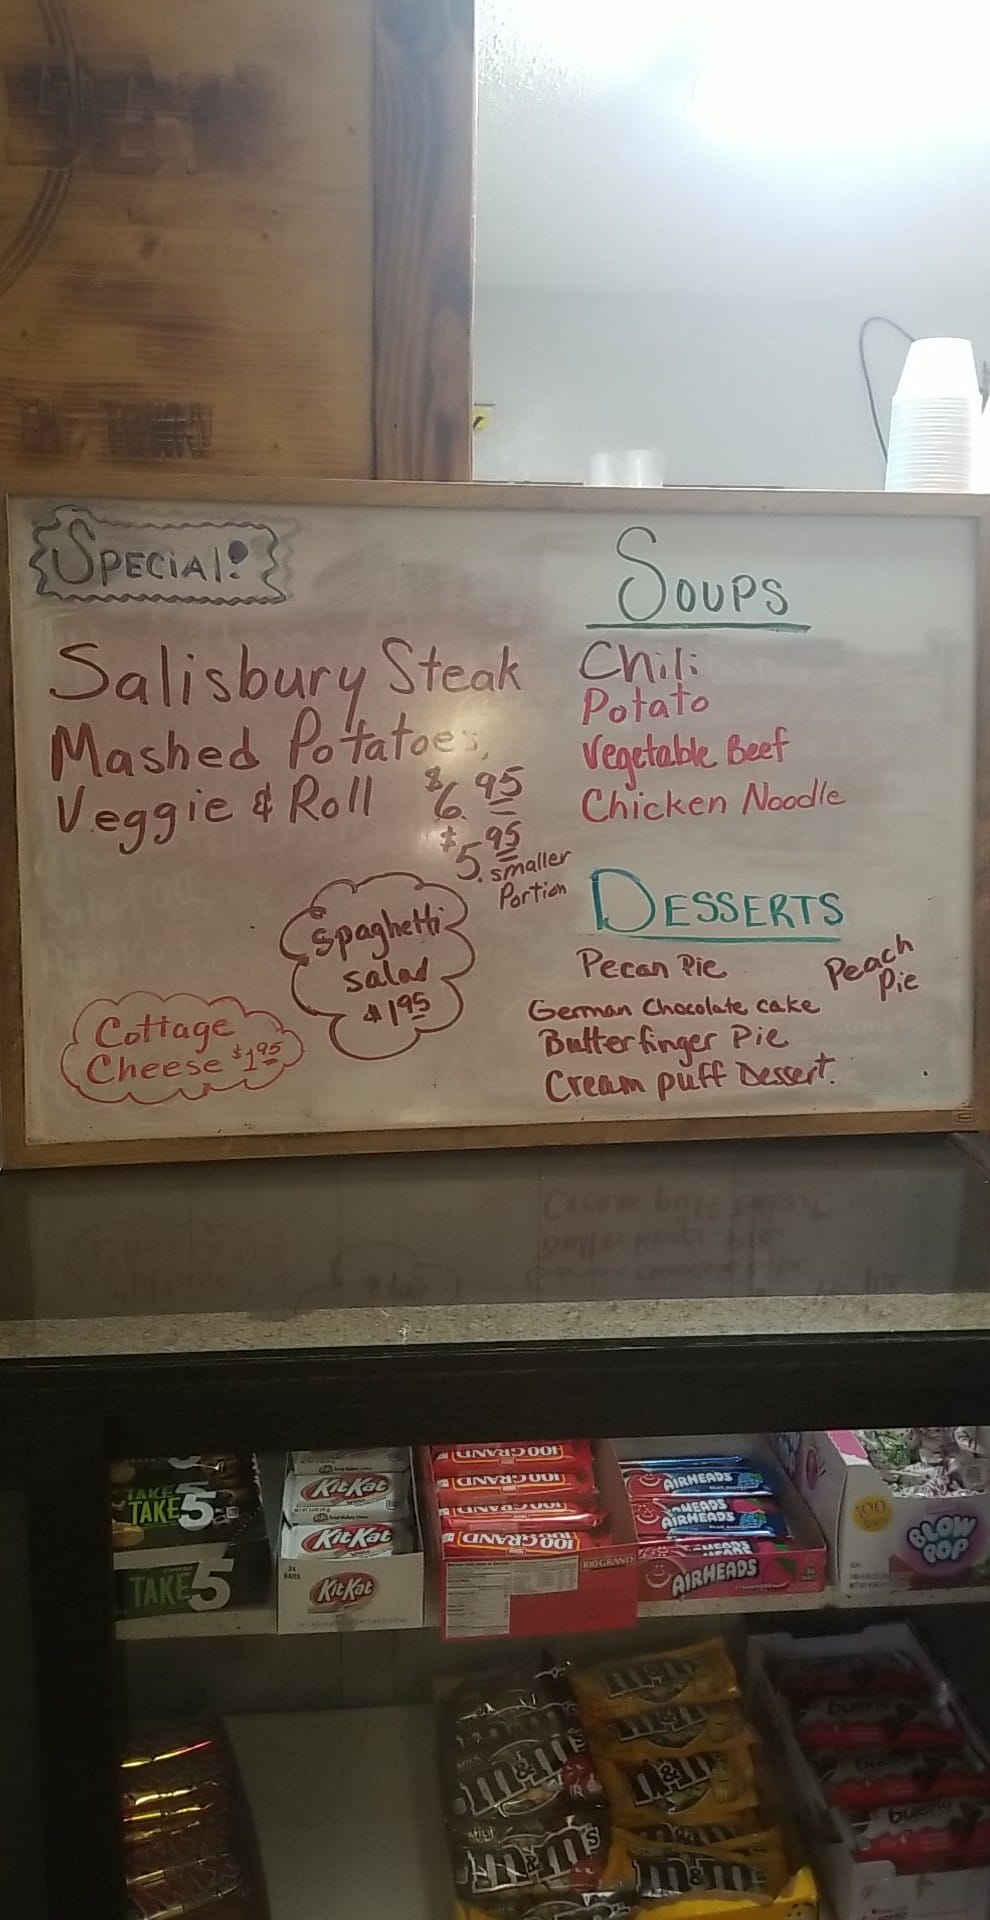 IN TOWN
SPECIAL!
Salisbury Steak
Mashed Potatoes,
Veggie & Roll $6.95
$5.95 smaller
Portion
spaghetti
salad
$1.95
Cottage
Cheese $1.95
SOUPS
Chili
Potato
Vegetable Beef
Chicken Noodle
DESSERTS
Pecan Pie
Peach
Pie
German Chocolate cake
Butterfinger Pie
Cream puff Dessert.
TAKE
TAKE 5
TAKE 5
KitKat
KitKat
24
BARS
KitKat
100 GRAND
100 GRAND
100 GRAND
100 GRAND
100 GRAND
AIRHEADS
AIRHEADS
AIRHEADS
AIRHEADS
100
BLOW
POP
m&m's
m&m's
m&m's
m&m's
m&m's
m&m's
bueno
bueno
bueno